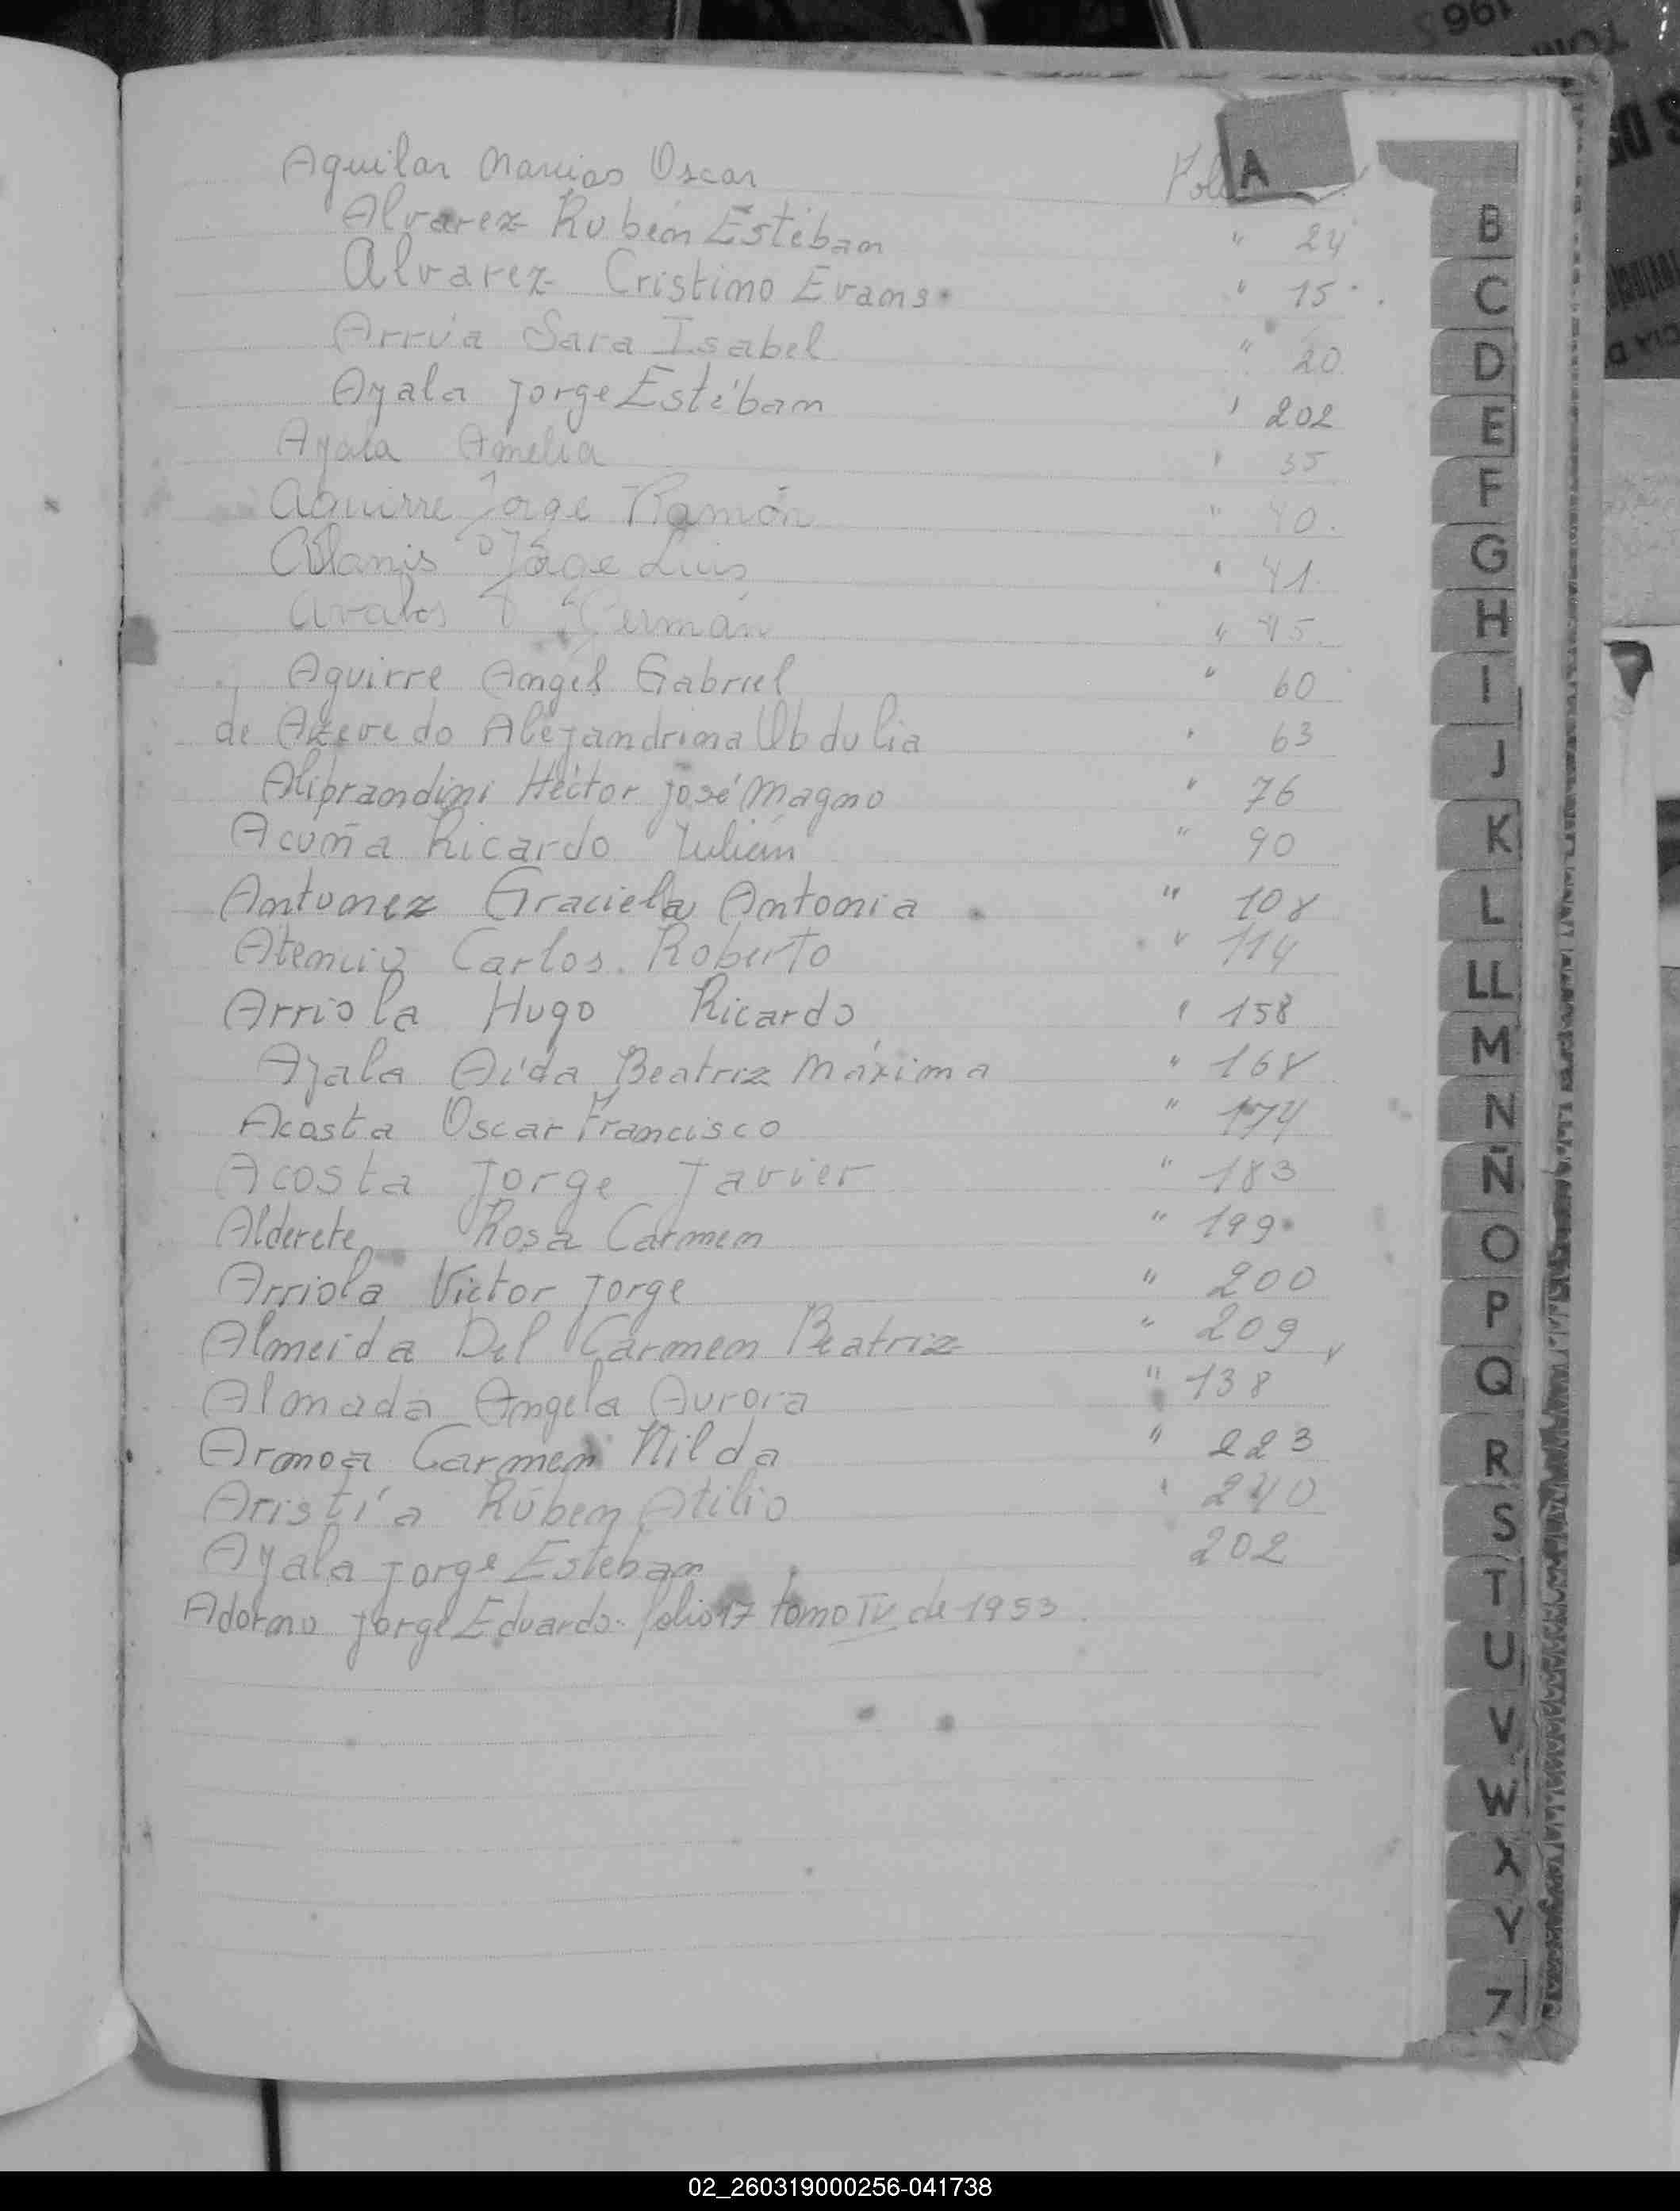 Aguilar Marcos Oscar Fol A
Alvarez Rubén Estéban " 24
Alvarez Cristino Evans " 15
Arrúa Sara Isabel " 20
Ayala Jorge Estéban " 202
Ayala Amelia " 35
Aguirre Jorge Ramón " 40
Alanis Jorge Luis " 41
Avalos Germán " 45
Aguirre Angel Gabriel " 60
de Azevedo Alejandrina Obdulia " 63
Aliprandini Héctor José Magno " 76
Acuña Ricardo Julián " 90
Antunez Graciela Antonia " 108
Atencio Carlos Roberto " 114
Arriola Hugo Ricardo " 158
Ayala Aída Beatriz Máxima " 168
Acosta Oscar Francisco " 174
Acosta Jorge Javier " 183
Alderete Rosa Carmen " 199
Arriola Victor Jorge " 200
Almeida Del Carmen Beatriz " 209
Almada Angela Aurora " 138
Armoa Carmen Nilda " 223
Aristía Rúben Atilio " 240
Ayala Jorge Esteban 202
Adorno Jorge Eduardo. folio 17 tomo IV de 1953.
B
C
D
E
F
G
H
I
J
K
L
LL
M
N
Ñ
O
P
Q
R
S
T
U
V
W
X
Y
Z
02_260319000256-041738